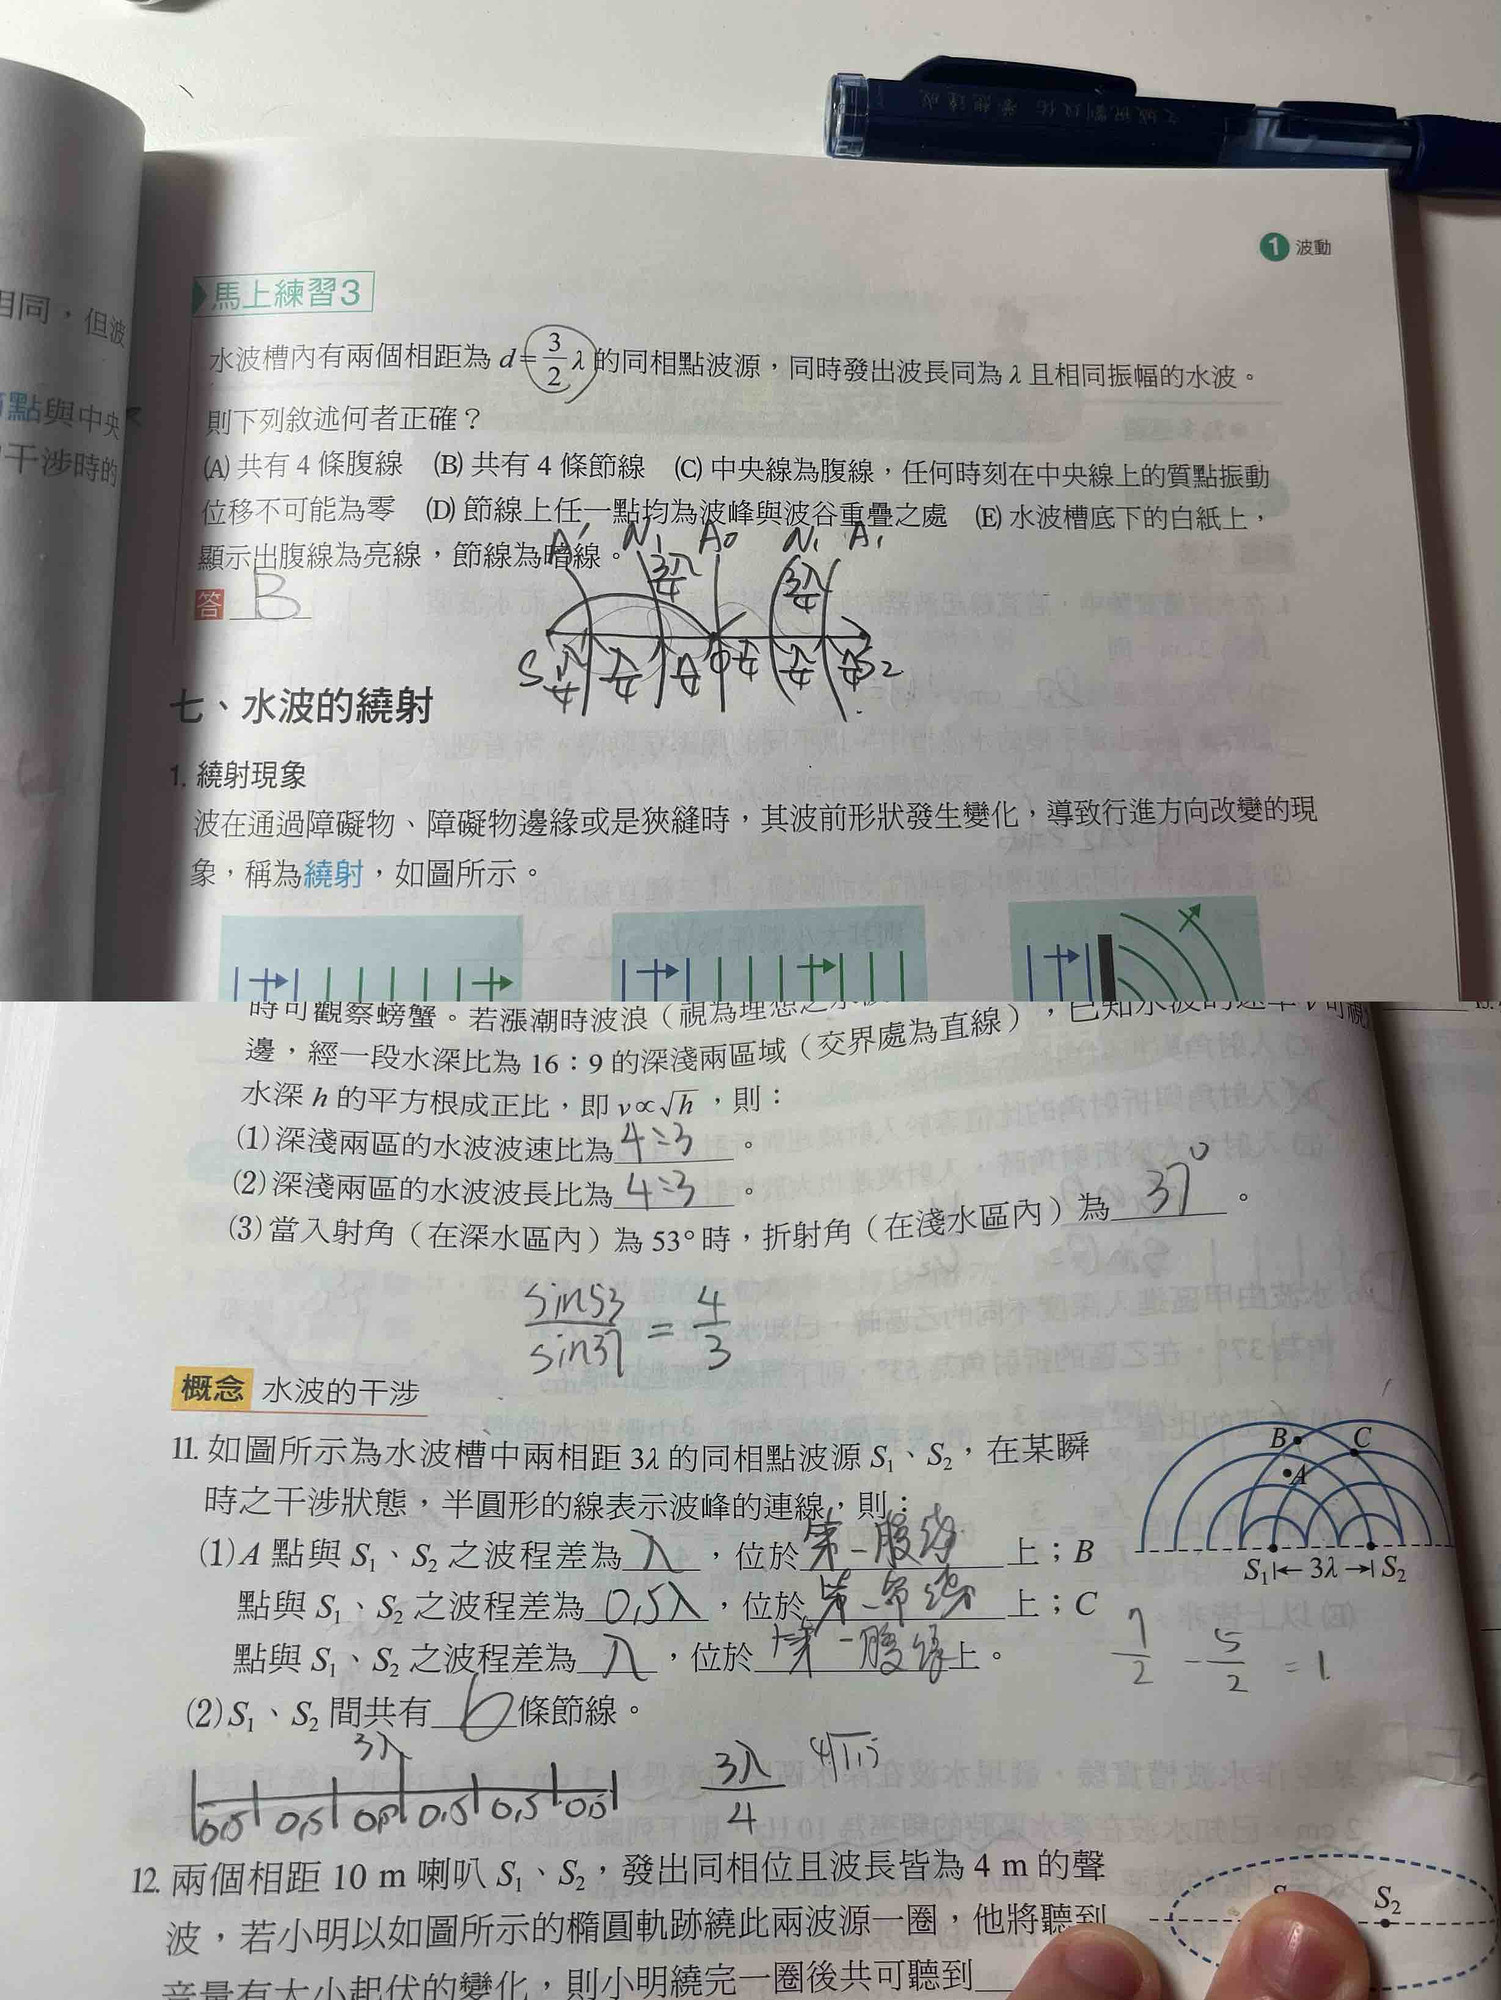 1 波動
相同,但波
馬上練習3
水波槽內有兩個相距為 d=3/2 λ 的同相點波源,同時發出波長同為 λ 且相同振幅的水波。
節點與中央
則下列敘述何者正確?
干涉時的
(A) 共有 4 條腹線 (B) 共有 4 條節線 (C) 中央線為腹線,任何時刻在中央線上的質點振動
位移不可能為零 (D) 節線上任一點均為波峰與波谷重疊之處 (E) 水波槽底下的白紙上,
顯示出腹線為亮線,節線為暗線。
A₁' N₁ A₀ N₁ A₁
3λ/4 3λ/4
答 B
S λ/4 λ/4 λ/4 λ/4 λ/4 λ/4 S2
七、水波的繞射
1. 繞射現象
波在通過障礙物、障礙物邊緣或是狹縫時,其波前形狀發生變化,導致行進方向改變的現
象,稱為繞射,如圖所示。
時可觀察螃蟹。若漲潮時波浪(視為理想之水波),已知水波的速率 v 可視
邊,經一段水深比為 16:9 的深淺兩區域(交界處為直線),
水深 h 的平方根成正比,即 v∝√h,則:
(1)深淺兩區的水波波速比為 4:3 。
(2)深淺兩區的水波波長比為 4:3 。
(3)當入射角(在深水區內)為 53° 時,折射角(在淺水區內)為 37° 。
sin53/sin37 = 4/3
概念 水波的干涉
11. 如圖所示為水波槽中兩相距 3λ 的同相點波源 S₁、S₂,在某瞬
時之干涉狀態,半圓形的線表示波峰的連線,則:
B C
A
S₁ 3λ S₂
(1) A 點與 S₁、S₂ 之波程差為 λ ,位於 第一腹線 上;B
點與 S₁、S₂ 之波程差為 0.5λ ,位於 第一節線 上;C
點與 S₁、S₂ 之波程差為 λ ,位於 第一腹線 上。
7/2 - 5/2 = 1
(2) S₁、S₂ 間共有 6 條節線。
3λ
0.5 0.5 0.5 0.5 0.5 0.5
3λ/4
12. 兩個相距 10 m 喇叭 S₁、S₂,發出同相位且波長皆為 4 m 的聲
波,若小明以如圖所示的橢圓軌跡繞此兩波源一圈,他將聽到
音量有大小起伏的變化,則小明繞完一圈後共可聽到
S₂